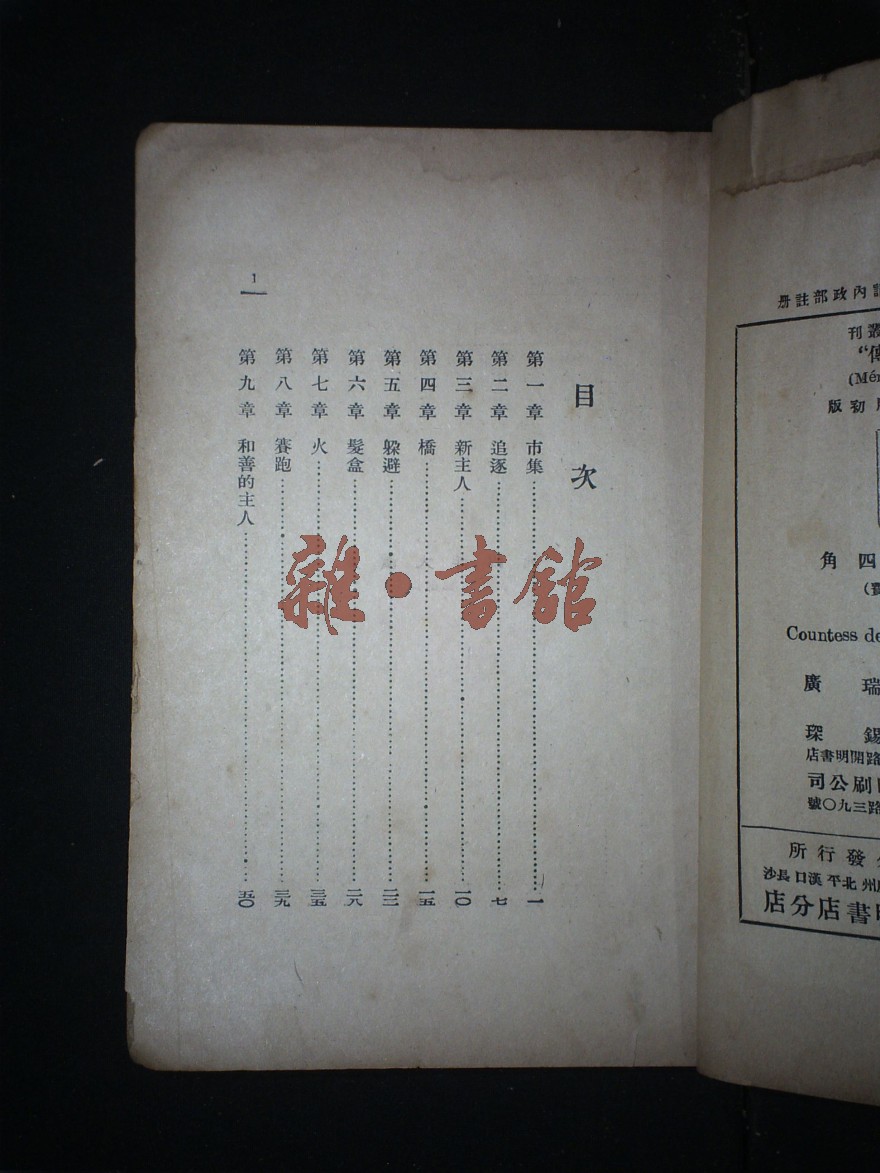 目次
第一章 市集……一
第二章 追逐……七
第三章 新主人……一〇
第四章 橋……一五
第五章 躲避……二三
第六章 髮盒……二八
第七章 火……三五
第八章 賽跑……三九
第九章 和善的主人……五〇
1
雜·書館
內政部註册
叢刊
“傻
(Mé
初版
四角
Countess de
廣瑞
琛錫
路開明書店
刷公司
路三九〇號
發行所
州 北平 漢口 長沙
書店分店